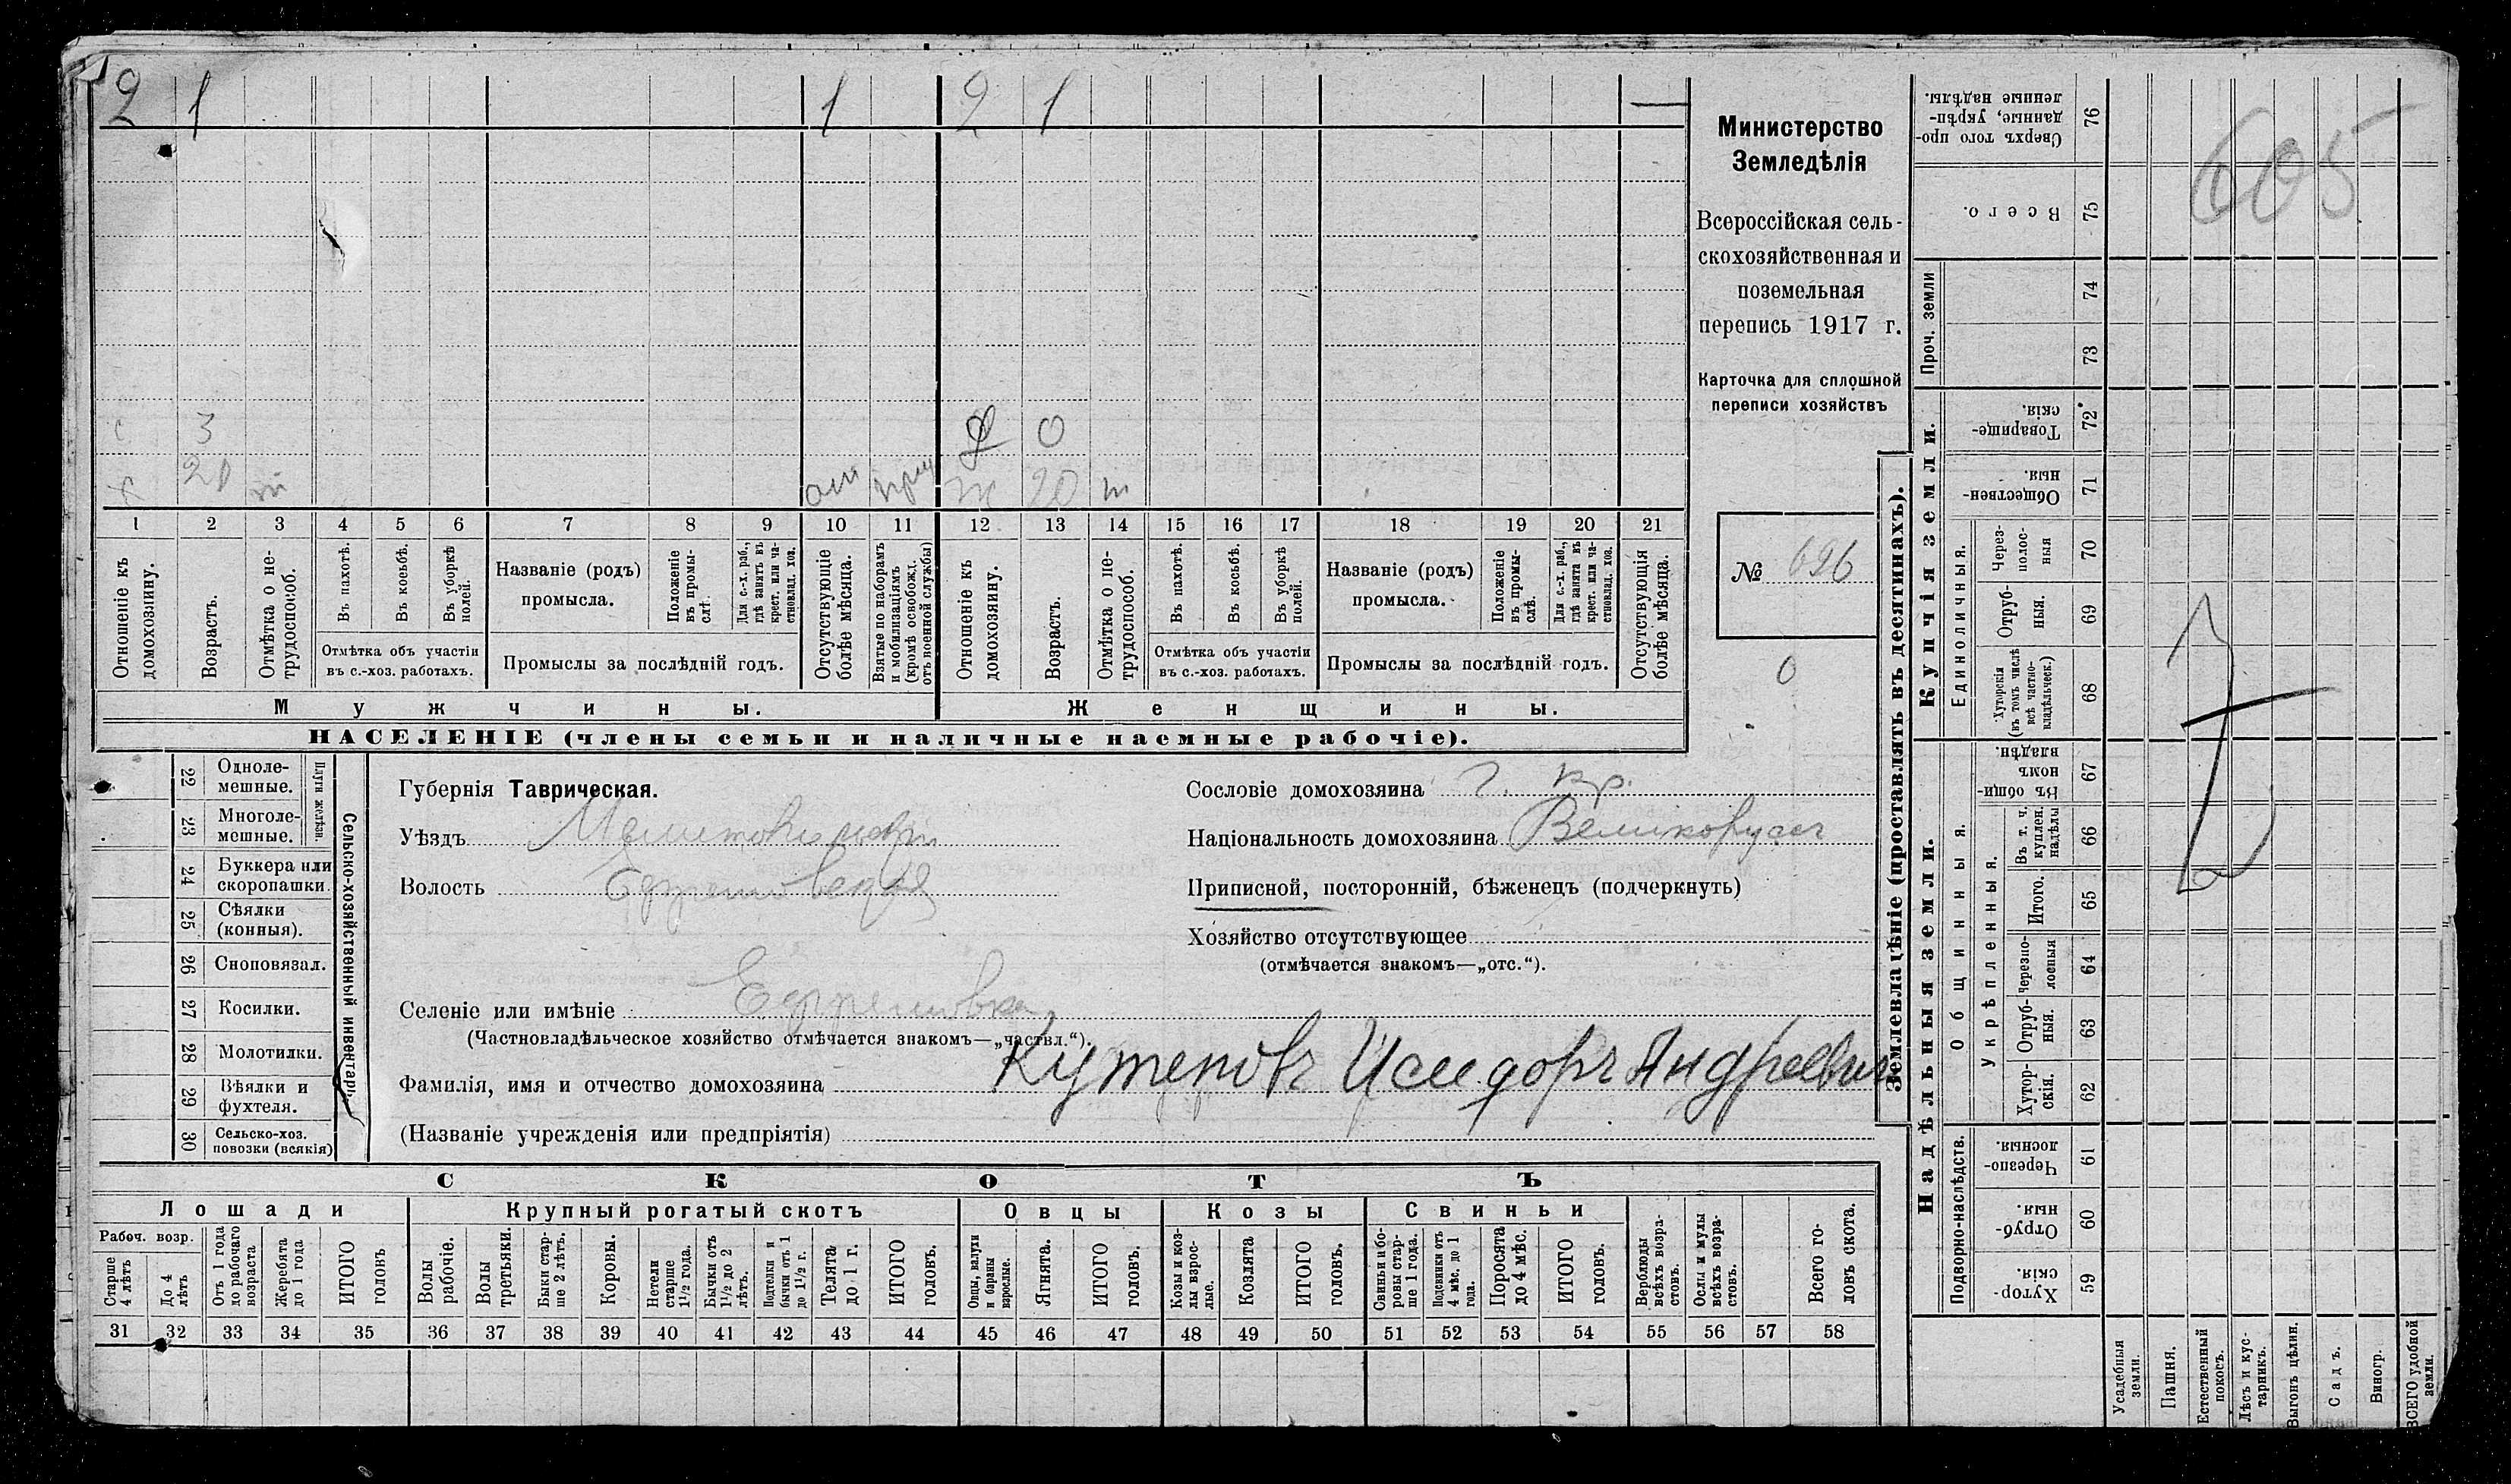 2 1 1 2 1 —
с 3 0
х 20 ж 20
1 2 3 4 5 6 7 8 9 10 11 12 13 14 15 16 17 18 19 20 21
Отношеніе къ домохозяину.
Возрастъ.
Отмѣтка о не-
трудоспособ.
Въ пахотѣ.
Въ косьбѣ.
Въ уборкѣ
полей.
Отмѣтка объ участіи
въ с.-хоз. работахъ.
Названіе (родъ)
промысла.
Положеніе
въ промы-
слѣ.
Для с.-х. раб.,
гдѣ занятъ въ
крест. или ча-
стновлад. хоз.
Промыслы за послѣдній годъ.
Отсутствующіе
болѣе мѣсяца.
Взятые по наборамъ
и мобилизаціямъ
(кромѣ освобожд.
отъ военной службы)
Отношеніе къ
домохозяину.
Возрастъ.
Отмѣтка о не-
трудоспособ.
Въ пахотѣ.
Въ косьбѣ.
Въ уборкѣ
полей.
Отмѣтка объ участіи
въ с.-хоз. работахъ.
Названіе (родъ)
промысла.
Положеніе
въ промы-
слѣ.
Для с.-х. раб.,
гдѣ занята въ
крест. или ча-
стновлад. хоз.
Промыслы за послѣдній годъ.
Отсутствующія
болѣе мѣсяца.
Мужчины.
Женщины.
НАСЕЛЕНІЕ (члены семьи и наличные наемные рабочіе).
Министерство
Земледѣлія
Всероссійская сель-
скохозяйственная и
поземельная
перепись 1917 г.
Карточка для сплошной
переписи хозяйствъ
№ 696
0
22 Одноле-
мешные.
23 Многоле-
мешные.
Плуги желѣзн.
24 Буккера или
скоропашки.
25 Сѣялки
(конныя).
26 Сноповязал.
27 Косилки.
28 Молотилки.
29 Вѣялки и
фухтеля.
30 Сельско-хоз.
повозки (всякія)
Сельско-хозяйственный инвентарь.
Губернія Таврическая.
Уѣздъ Мелитопольскій
Волость Ефремовская
Селеніе или имѣніе Ефремовка
(Частновладѣльческое хозяйство отмѣчается знакомъ—„частвл.“).
Фамилія, имя и отчество домохозяина Кутеповъ Исидоръ Андреевич
(Названіе учрежденія или предпріятія)
Сословіе домохозяина г. кр.
Національность домохозяина Великоруссъ
Приписной, посторонній, бѣженецъ (подчеркнуть)
Хозяйство отсутствующее
(отмѣчается знакомъ—„отс.“).
СКОТЪ
Лошади
Рабоч. возр.
Старше
4 лѣтъ
До 4
лѣтъ
Отъ 1 года
до рабочаго
возраста
Жеребята
до 1 года
ИТОГО
головъ
Крупный рогатый скотъ
Волы
рабочіе.
Волы
третьяки.
Быки стар-
ше 2 лѣтъ.
Коровы.
Нетели
старше
1½ года.
Бычки отъ
1½ до 2
лѣтъ.
Подтелки и
бычки отъ 1
до 1½ г.
Телята
до 1 г.
ИТОГО
головъ.
Овцы
Овцы, валухи
и бараны
взрослые.
Ягнята.
ИТОГО
головъ.
Козы
Козы и коз-
лы взрос-
лые.
Козлята
ИТОГО
головъ.
Свиньи
Свиньи и бо-
ровы стар-
ше 1 года.
Подсвинки отъ
4 мѣс. до 1
года.
Поросята
до 4 мѣс.
ИТОГО
головъ.
Верблюды
всѣхъ возра-
стовъ.
Ослы и мулы
всѣхъ возра-
стовъ.
Всего го-
ловъ скота.
31 32 33 34 35 36 37 38 39 40 41 42 43 44 45 46 47 48 49 50 51 52 53 54 55 56 57 58
Землевладѣніе (проставлять въ десятинахъ).
Купчія земли.
Надѣльныя земли.
Сверхъ того про-
данные, укрѣп-
ленные надѣлы.
76
Всего.
75
Проч. земли
74
73
Товарище-
скія.
72
Обществен-
ныя.
71
Единоличныя.
Через-
полос-
ныя
70
Отруб-
ныя.
69
Хуторскія
(въ томъ числѣ
всѣ частно-
владѣльческ.)
68
Общинныя.
Въ общин-
номъ
владѣн.
67
Укрѣпленныя.
Въ т. ч.
куплен.
надѣлы
66
Итого.
65
Черезпо-
лосныя
64
Отруб-
ныя.
63
Хутор-
скія.
62
Подворно-наслѣдств.
Черезпо-
лосныя.
61
Отруб-
ныя.
60
Хутор-
скія.
59
Усадебныя
земли.
Пашня.
Естественный
покосъ.
Лѣсъ и кус-
тарникъ.
Выгонъ цѣлин.
Садъ.
Виногр.
ВСЕГО удобной
земли.
605